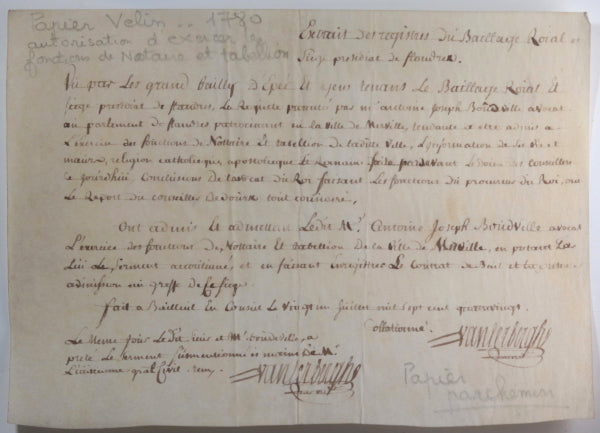 Papier Velin .. 1780
autorisation d'exercer
fonctions de Notaire et tabellion
Extrait des registres du Bailliage Roial et
siège présidial de flandres.
Vu par Les grand bailly D'Epée et gens tenans Le Bailliage Roial et
siége présidial de flandres, La Requête présenté par Me antoine Joseph Boudville avocat
au parlement de flandres patrocinant en la ville de Merville, tendante a etre admis a
L'exercice des fonctions de Nottaire Et tabellion de laditte ville, L'information de ses vie et
mœurs, religion catholique, apostolique et Romaine
ce jourdhui, Conclusions de l'avocat du Roi faisant Les fonctions du procureur du Roi, ouï
Le Raport du conseiller tout consideré,
Ont admis Et admettent Ledit Me. Antoine Joseph Boudville avocat
L'exercice des fonctions de Nottaire et tabellion de la ville de Merville, en pretant
Le serment accoutumé, et en faisant Enregistrer Le
admission au greffe de ce siege
fait a Bailleul En Conseil Le vingt un juillet mil sept cent quatrevingt.
Collationné. vanlerberghe
Le Meme jour Ledit Me Boudville, a
preté Le serment susmentionné es mains de Mr
Lieutenant gnal Civil. vanlerberghe
Papier
parchemin